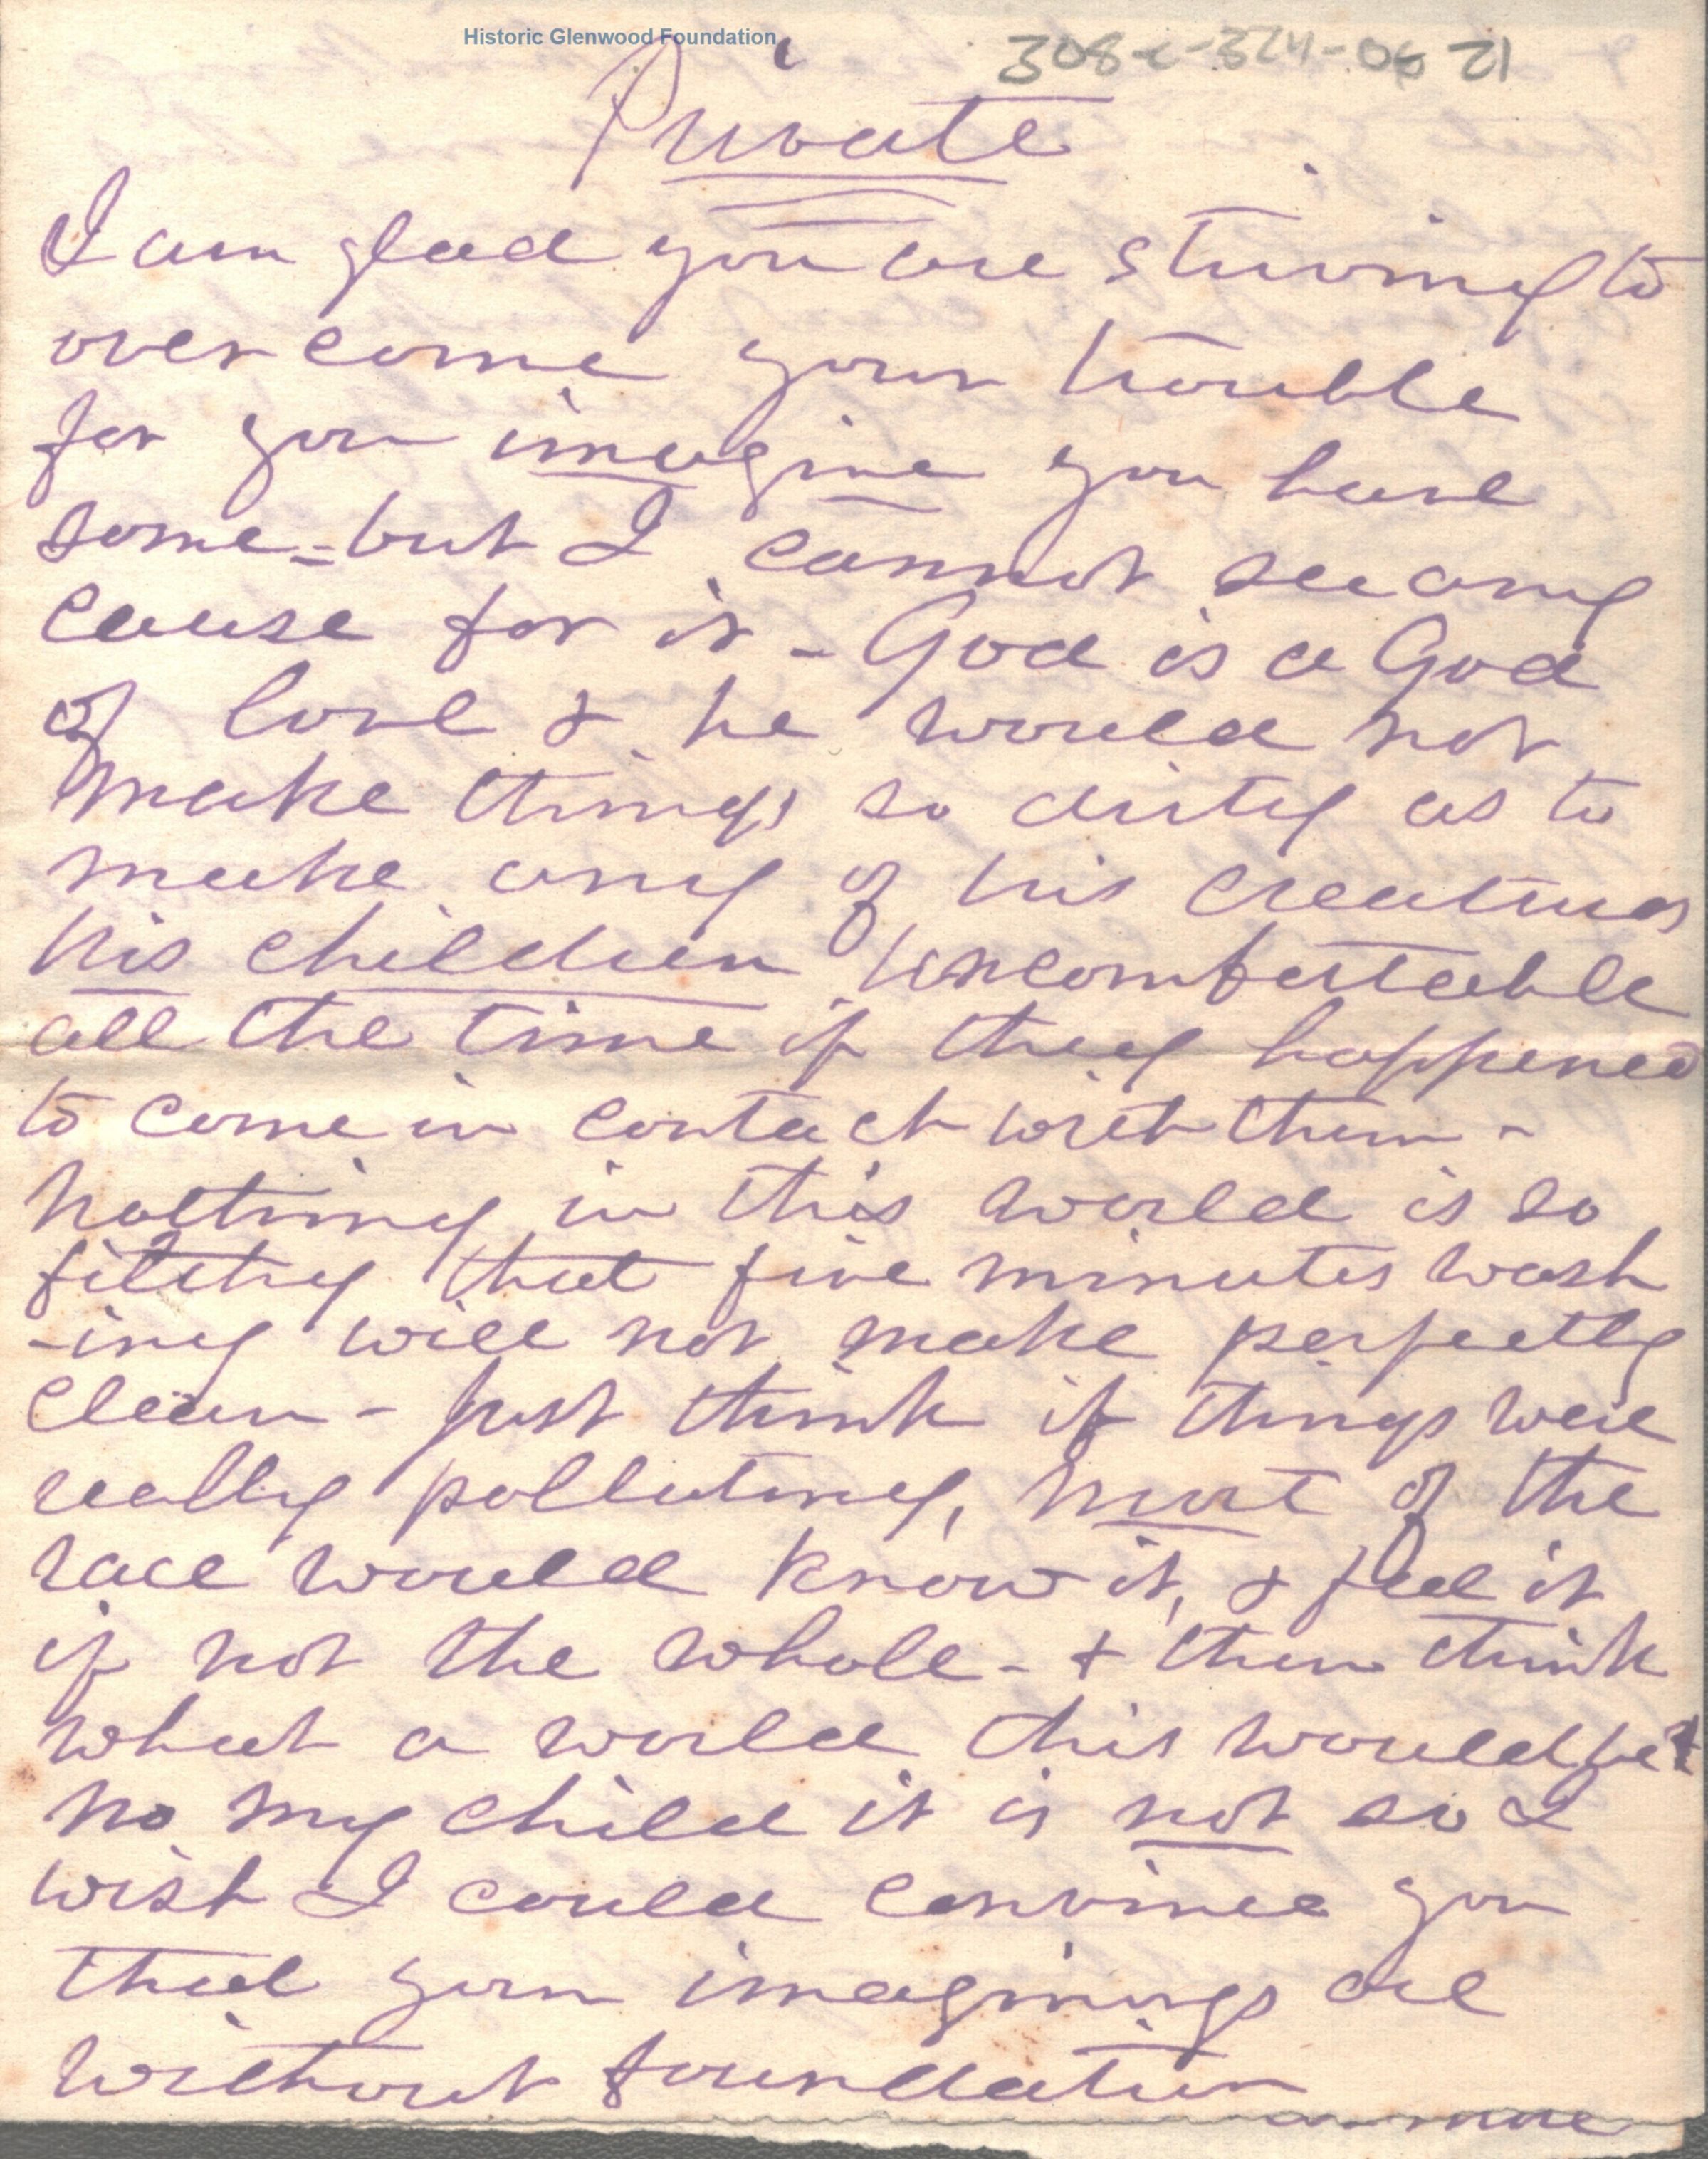 Historic Glenwood Foundation
308-c-324-06 21
Private
I am glad you are striving to
over come your trouble
for you imagine you have
some = but I cannot see any
cause for it - God is a God
of love & he would not
make things so dirty as to
make any of his creatures
his children uncomfortable
all the time if they happened
to come in contact with them -
Nothing in this world is so
filthy that five minutes wash
-ing will not make perfectly
clean - Just think if things were
really polluting, most of the
race would know it, & feel it
if not the whole - & then think
what a world this would be!
No my child it is not so I
wish I could convince you
that your imaginings are
without foundation
more